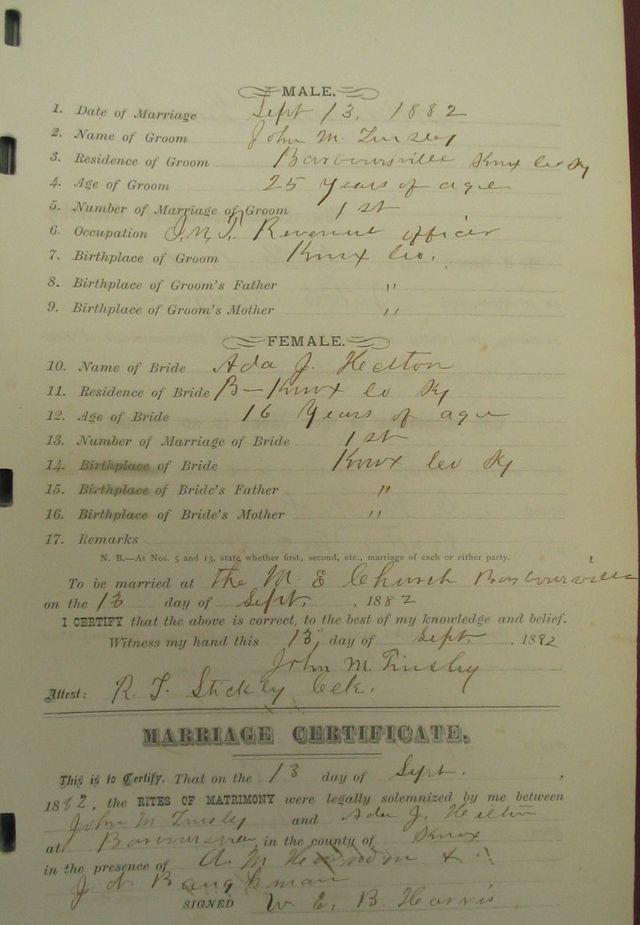 MALE.
1. Date of Marriage Sept 13, 1882
2. Name of Groom John M. Tinsley
3. Residence of Groom Barboursville Knox Co Ky
4. Age of Groom 25 Years of age
5. Number of Marriage of Groom 1st
6. Occupation Revenue officer
7. Birthplace of Groom Knox Co.
8. Birthplace of Groom's Father "
9. Birthplace of Groom's Mother "
FEMALE.
10. Name of Bride Ada J. Helton
11. Residence of Bride B— Knox Co Ky
12. Age of Bride 16 Years of age
13. Number of Marriage of Bride 1st
14. Birthplace of Bride Knox Co Ky
15. Birthplace of Bride's Father "
16. Birthplace of Bride's Mother "
17. Remarks
N. B.—At Nos. 5 and 13, state whether first, second, etc., marriage of each or either party.
To be married at the M E Church Barboursville
on the 13 day of Sept. , 1882
I CERTIFY that the above is correct, to the best of my knowledge and belief.
Witness my hand this 13, day of Sept. , 1882
John M. Tinsley
Attest: R. T. Stickly Clk.
MARRIAGE CERTIFICATE.
This is to Certify, That on the 13 day of Sept. ,
1882, the RITES OF MATRIMONY were legally solemnized by me between
John M Tinsley and Ada J. Helton
at Barboursville, in the county of Knox
in the presence of A. M Herndon &
J. A. Baughman
SIGNED W. E. B. Harris